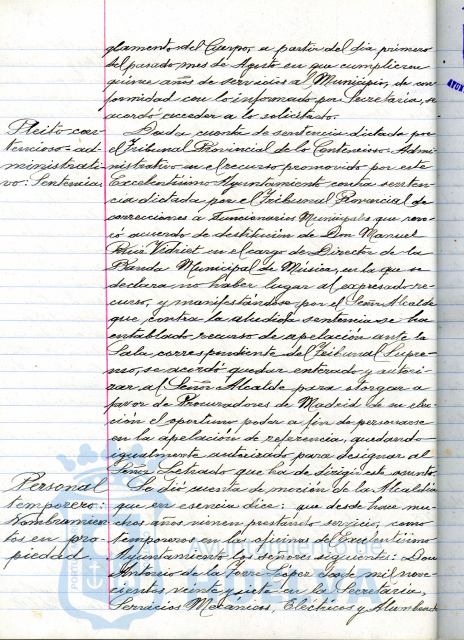 glamento del Cuerpo, a partir del dia primero
del pasado mes de Agosto en que cumplieron
quince años de servicios al Municipio, de con-
formidad con lo informado por Secretaria, se
acordó acceder a lo solicitado.
Pleito con-
tencioso-ad-
ministrati-
vo: Sentencia
Dada cuenta de sentencia dictada por
el Tribunal Provincial de lo Contencioso-Admi-
nistrativo en el recurso promovido por este
Excelentisimo Ayuntamiento contra senten-
cia dictada por el Tribunal Provincial de
correcciones a Funcionarios Municipales que revo-
có acuerdo de destitución de Don Manuel
Ruiz Vidriet en el cargo de Director de la
Banda Municipal de Música, en la que se
declara no haber lugar al expresado re-
curso, y manifestándose por el Señor Alcalde
que contra la aludida sentencia se ha
entablado recurso de apelación ante la
Sala correspondiente del Tribunal Supre-
mo, se acordó quedar enterado y autori-
zar al Señor Alcalde para otorgar a
favor de Procuradores de Madrid de su elec-
ción el oportuno poder a fin de personarse
en la apelación de referencia, quedando
igualmente autorizado para designar al
Señor Letrado que ha de dirigir este asunto.
Personal
temporero:
Nombramien-
tos en pro-
piedad.
Se dió cuenta de moción de la Alcaldia
que en esencia dice: que desde hace mu-
chos años vienen prestando servicio, como
temporeros en las oficinas del Excelentisimo
Ayuntamiento los señores siguientes: Don
Antonio de la Torre López desde mil nove-
cientos veinte y siete en la Secretaria,
Servicios Mecánicos, Eléctricos y Alumbrado